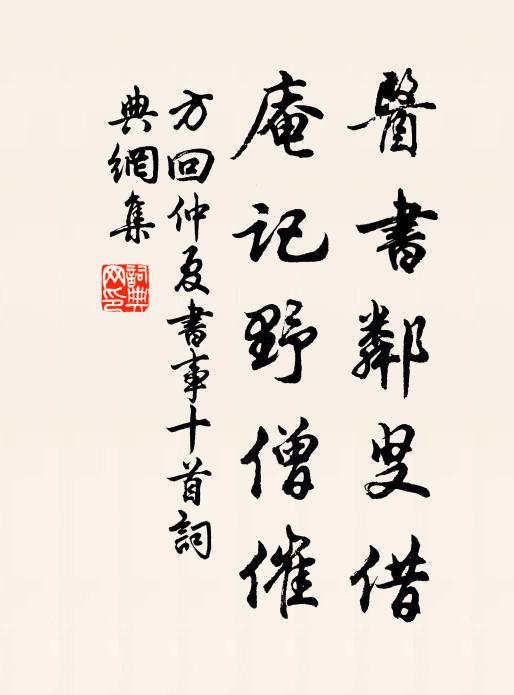 醫書鄰叟借
庵記野僧催
方回仲夏書事十首詞
典網集
詞典
网印